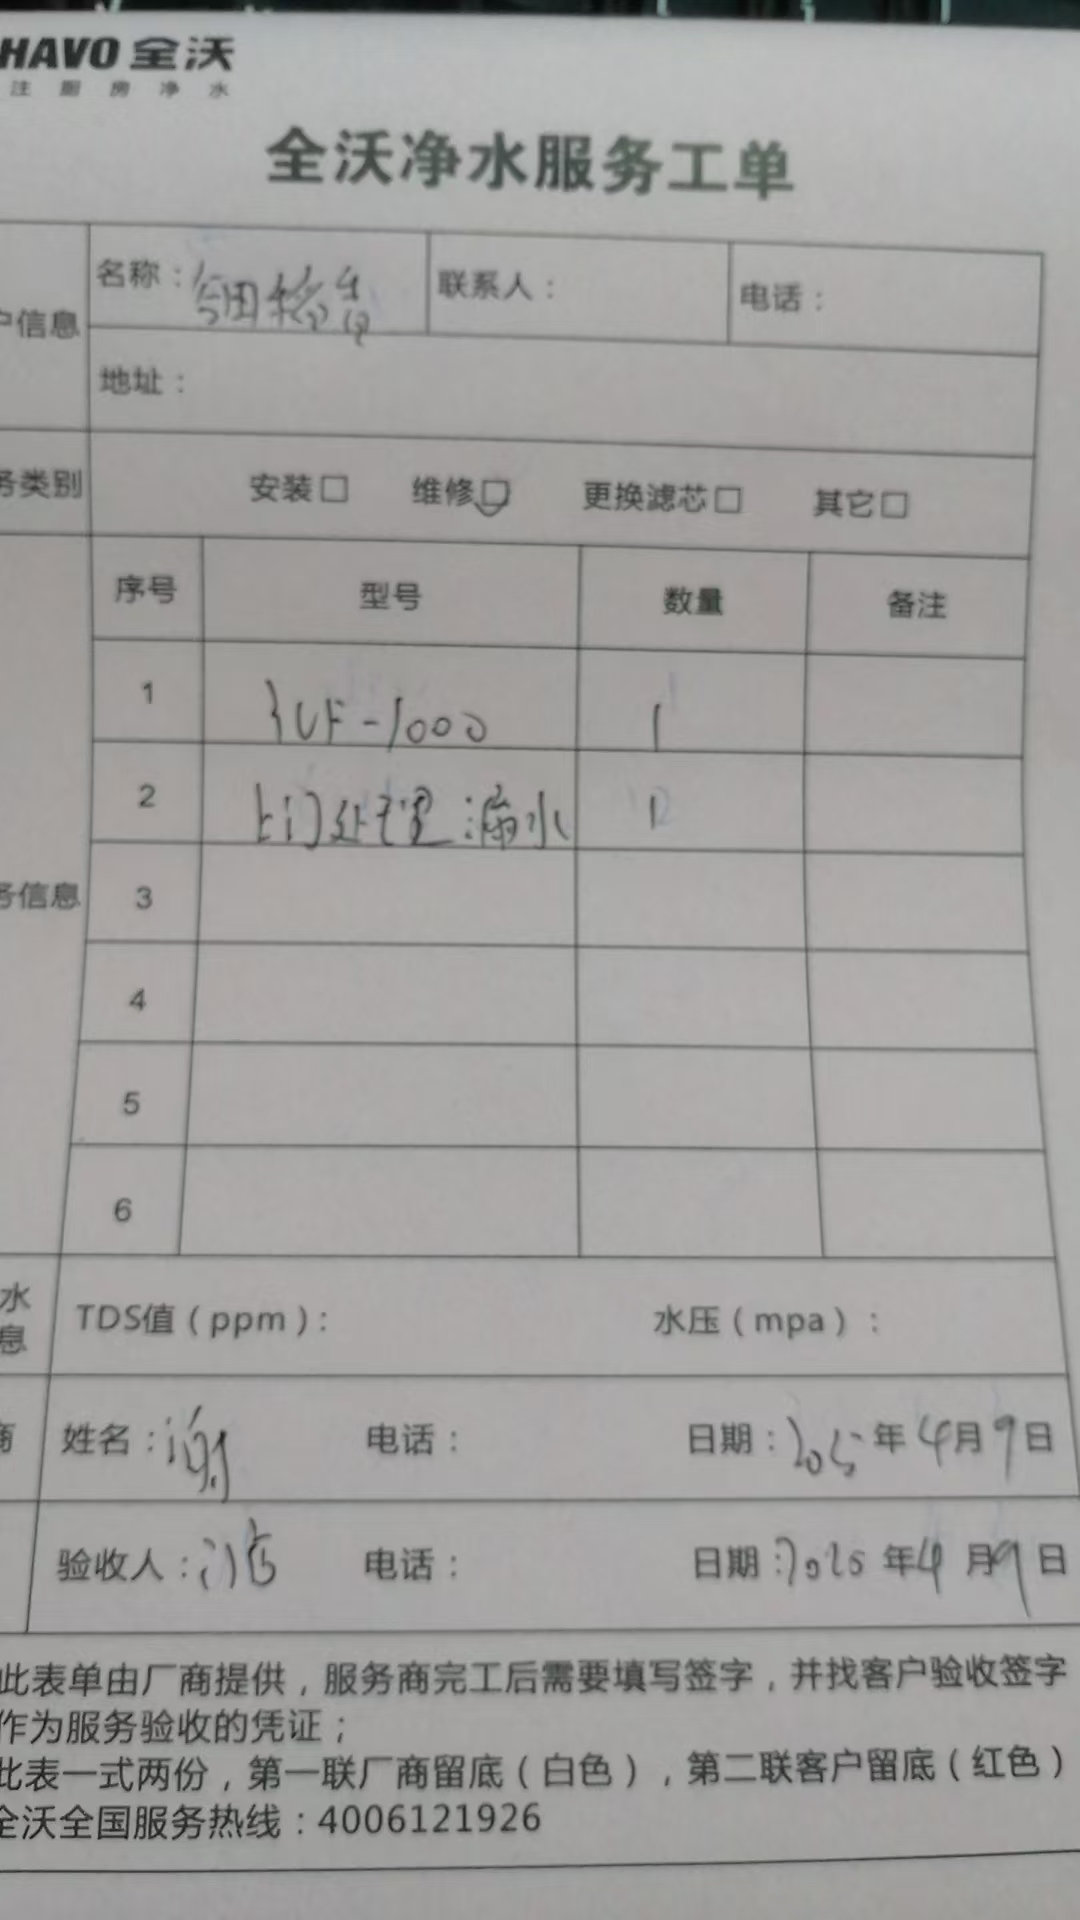 HAVO 全沃
注厨房净水
全沃净水服务工单
户信息
名称：
联系人：
电话：
地址：
务类别
安装□ 维修□ 更换滤芯□ 其它□
序号 型号 数量 备注
务信息
1 UF-1000 1
2 上门处理漏水 1
3
4
5
6
水
息
TDS值（ppm）： 水压（mpa）：
商
姓名：谢 电话： 日期：2025年4月9日
验收人： 电话： 日期：2025年4月9日
此表单由厂商提供，服务商完工后需要填写签字，并找客户验收签字
作为服务验收的凭证；
此表一式两份，第一联厂商留底（白色），第二联客户留底（红色）
全沃全国服务热线：4006121926